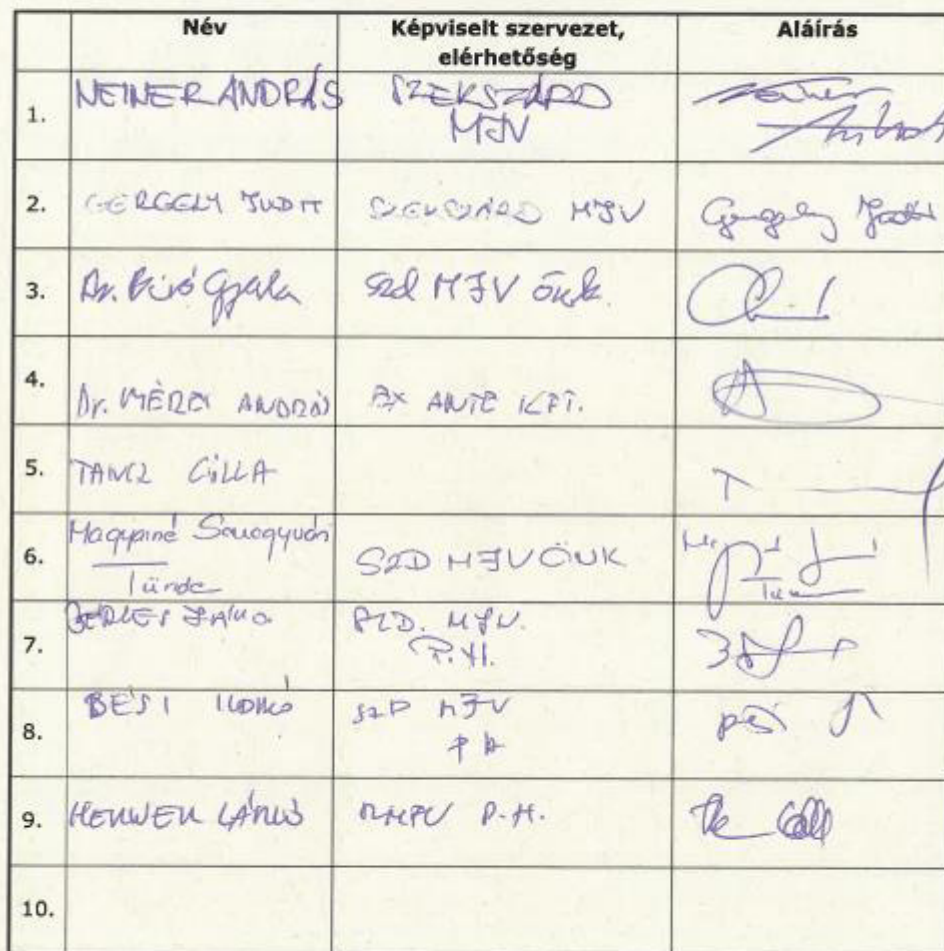 Név Képviselt szervezet, Aláírás
elérhetőség
1. NEINER ANDRÁS SZEKSZÁRD
MJV
2. GERGELY JUDIT SZEKSZÁRD MJV Gergely Judit
3. Dr. Bíró Gyula Szd MJV Önk.
4. Dr. MÉREI ANDRÁS EX ANTE KFT.
5. TANCZ CILLA
6. Magyariné Somogyvári
Tünde SZD MJV ÖNK
7. SZD. MJV.
P.H.
8. BÉSI ILDIKÓ SZD MJV
PH
9. LÁSZLÓ P.H.
10.